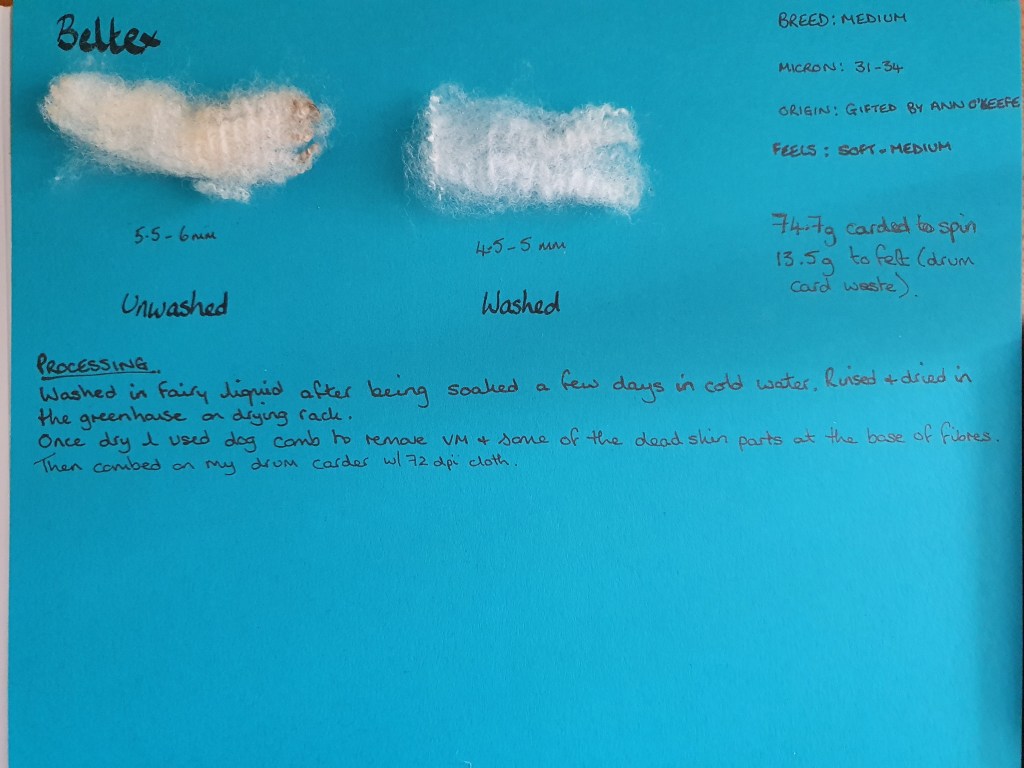 Beltex
BREED: MEDIUM
MICRON: 31-34
ORIGIN: GIFTED BY ANN O'KEEFE
FEELS: SOFT-MEDIUM
74.7g carded to spin
13.5g to felt (drum
card waste).
5.5-6mm
4.5-5mm
Unwashed
Washed
PROCESSING.
Washed in Fairy liquid after being soaked a few days in cold water. Rinsed + dried in
the greenhouse on drying rack.
Once dry I used dog comb to remove VM + some of the dead skin parts at the base of fibres.
Then combed on my drum carder w/ 72 dpi cloth.